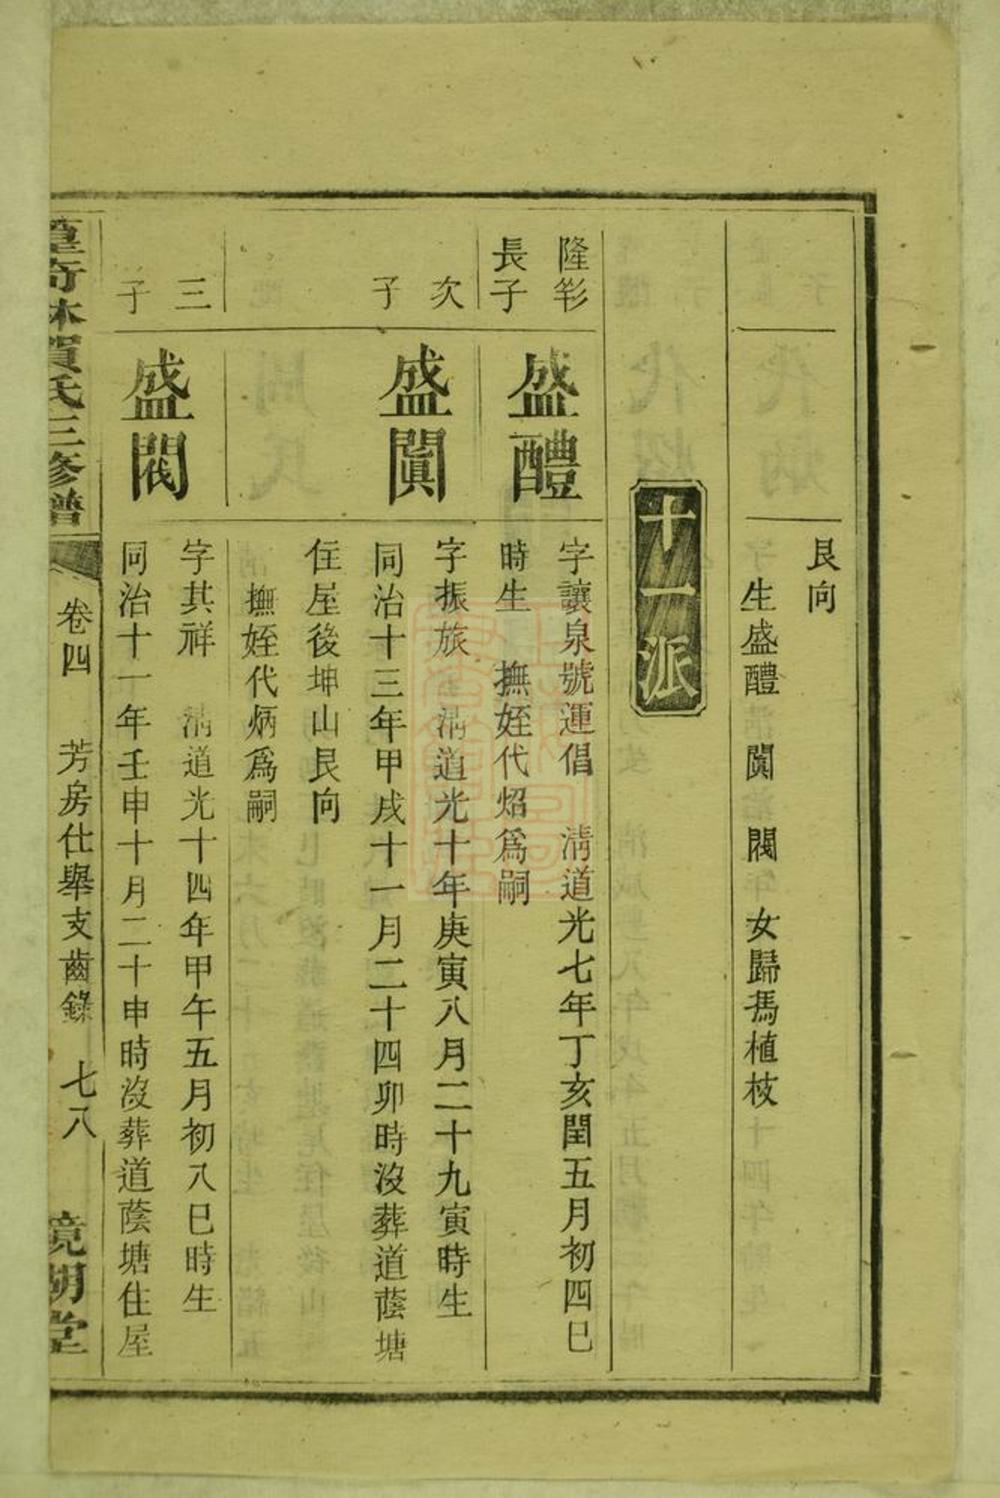 艮向
生盛醴 闐 閥 女歸馮植枝
十一派
隆彣
長子
盛醴
字讓泉號運倡 清道光七年丁亥閏五月初四巳
時生 撫姪代炤為嗣
次
子
盛闐
字振旅 清道光十年庚寅八月二十九寅時生
同治十三年甲戌十一月二十四卯時沒葬道蔭塘
住屋後坤山艮向
撫姪代炳為嗣
三
子
盛閥
字其祥 清道光十四年甲午五月初八巳時生
同治十一年壬申十月二十申時沒葬道蔭塘住屋
賀氏三修譜
卷四 芳房仕舉支齒錄 七八
鏡湖堂